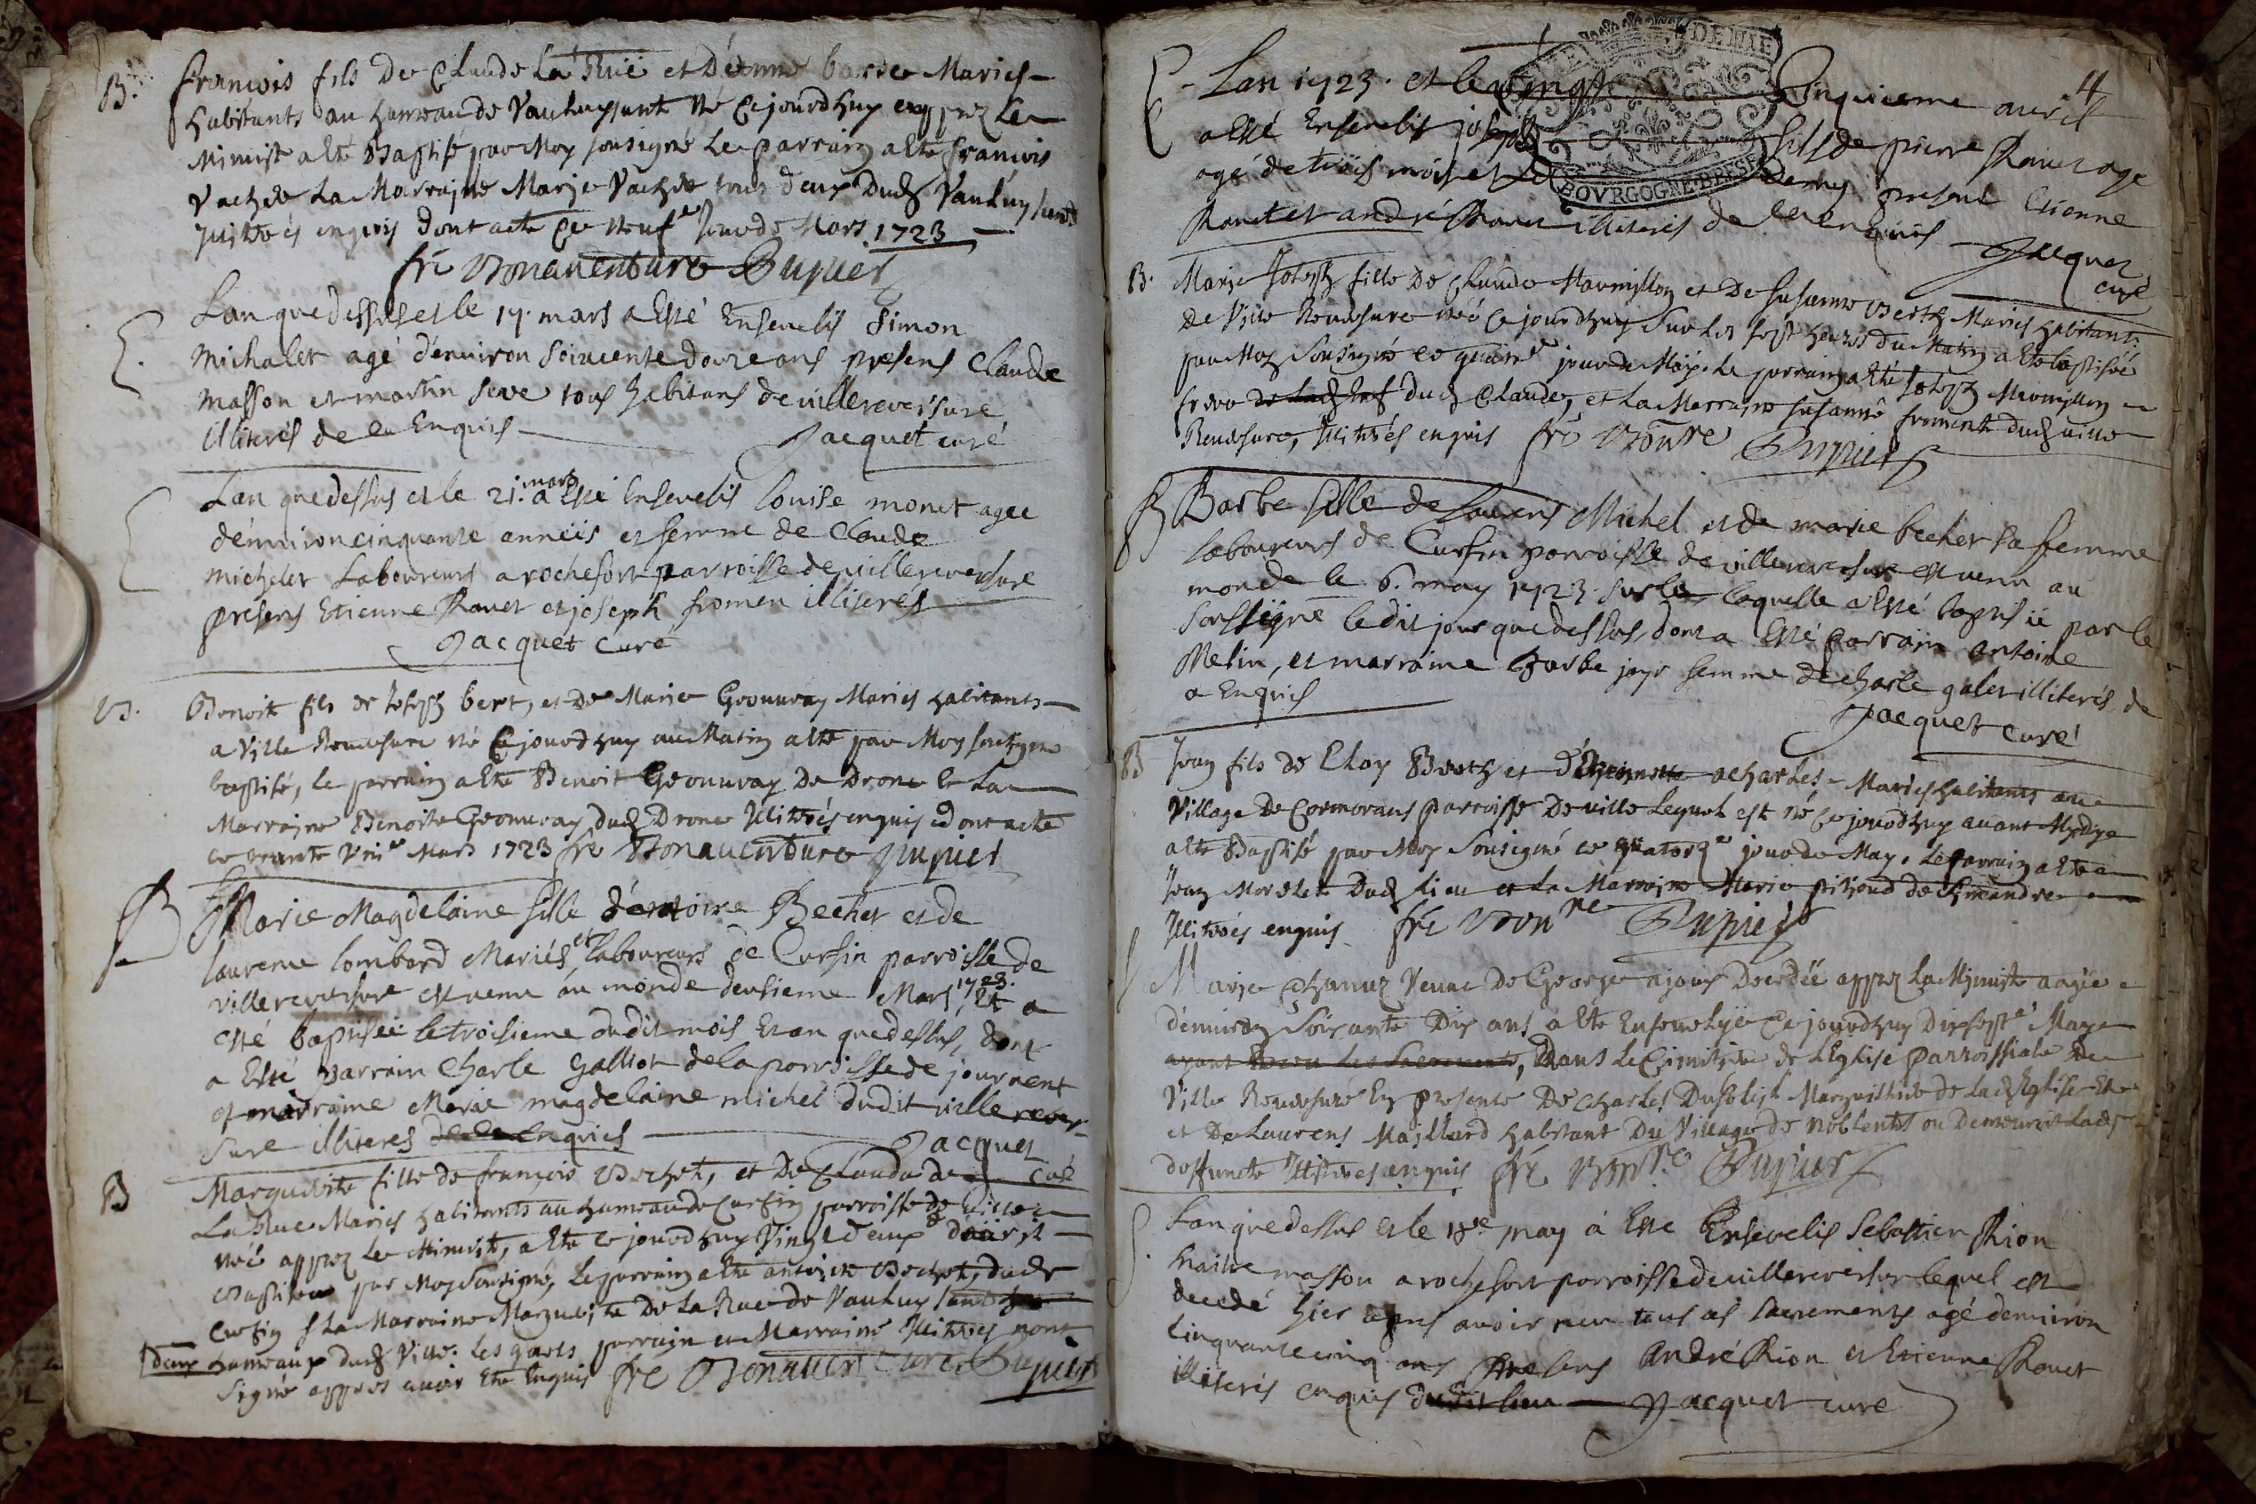 B. francois fils De Claude La Rue et D'éenne Maries
habitants au hameau de Vauluysant Né Cejourdhuy apprez Le
Minuit a eté Baptisé par Moy sousigné Le parrain a eté francois
Vachez La Marraine Marie Vachez tous deux Dudt Vauluysant
enquis dont acte Ce Neufe Jour de Mars 1723
frè Bonauenture Dupuier
Lan que dessus et le 17. mars a Esté Enseuelis Simon
michalet agé d'enuiron soixcente douze ans presens Claude
masson et martin seve tous habitans de uillereversure
illiterés de ce Enquis
Jacquet curé
Lan que dessus et le 21. mars a Esté Enseuelis louise monet agee
d'enuiron cinquante anneés et femme de Claude
michelet Laboureurs a rochefort parroisse de uillereversure
presens Etienne Rauet et joseph fromen illiterés
Jacquet Curé
B. Benoit fils de Joseph bert, et De Marie Geonuray Mariés habitants
a Ville Reuersure Né Cejourdhuy au Matin a eté par Moy sousigné
baptisé, le parrain a eté Benoit Geonuray De Drone et La
Marraine Benoite Geonuray dudt Drone Illiterés enquis dont acte
ce trante Vnie Mars 1723 frè Bonauenture Dupuier
B Marie Magdelaine fille d'entoine Becher et de
laurence lombard Mariés et laboureurs de Cursin parroisse de
villereversure est uenu au monde deusieme Mars 1723. Et a
esté baptiseé le troisieme dudit mois et an que dessus, dont
a Esté parrain Charle Galliot de la parroisse de journent
et marraine Marie magdelaine michel dudit uillerever
sure illiteres de ce Enquis
Jacquet
Curé
B Marguerite fille de francois Bechet, et De Claudade
La Rue Mariés habitants au hameau de Cursin parroisse de uille
Née apprez Le Minuit, a eté ce jourdhuy Vingt deux dauril
Baptisée par Moy Sousigné, Le parrain a eté antoine Bechet, dudt
Cursin et La Marraine Marguerite De La Rue de Vauluysant
deux hameaux dudt Ville. Les quels parrain et Marraine Illiterés nont
signé appres auoir Eté Enquis frè Bonauenture Dupuier
4
Lan 1723. et le vingt Cinquieme auril
a Esté Enseuelis joseph fils de pierre Rauet age
agé de trois mois et present Etienne
Rauet et andré Rauet illiterés de ce enquis
Jacquet
curé
B. Marie Joseph fille De Claude Marmillon et De Susanne Berth Mariés habitants
De Ville Reuersure née Ce jourdhuy Sur Les sept heures du Matin a eté baptisée
par Moy Sousigné ce jour de May. Le parrain a eté Joseph
frere dudt Claude, et La Marraine susanne froment dudt uille
Reuersure, Illiterés enquis frè Bonure Dupuier
B Barbe fille de laurens Michel et de marie becher sa femme
laboureurs de Cursin parroisse de uillereversure est uenu au
monde le 6. may 1723. laquelle a Esté baptiseé par le
Soussigné ledit jour que dessus, dont a Esté parrain antoine
Metin, et marraine Barbe jayr femme de charle galet illiterés de
a Enquis
Jacquet curé
B Jean fils de Eloy Berth et acharles Mariés habitants au
Village De Cormorans parroisse De uille Lequel est né Ce jourdhuy auant Mydy
a eté Baptisé par Moy Sousigné ce quatorze jour de May. Le parrain a eté
Jean Morelet Dudt lieu et La Marraine Marie de Simandre
Illiterés enquis frè Bonure Dupuier
Marie Veuue De George ajour Decedée apprez La Minuite aagée
d'enuiron Soixante Dix ans a eté Enseuelye Ce jourdhuy Dixsepte May
ayant Receu Les Sacrements, Dans Le Cimitiere de L'Eglise parroissiale De
Ville Reuersure En presence De Charles Marguillier de Ladt Eglise
et De Laurens Maillard habitant Du Village de Noblentes ou Demeuroit Ladt
deffuncte Illiteres enquis frè Bonure Dupuier
Lan que dessus et le 18e may a Esté Enseuelis Sebastien Rion
maitre masson a rochefort parroisse de uillereversure lequel est
decedé hier apres auoir receu tous ses sacrements agé denuiron
cinquante cinq ans presens André Rion et Etienne Rauet
illiterés enquis dudit lieu Jacquet curé